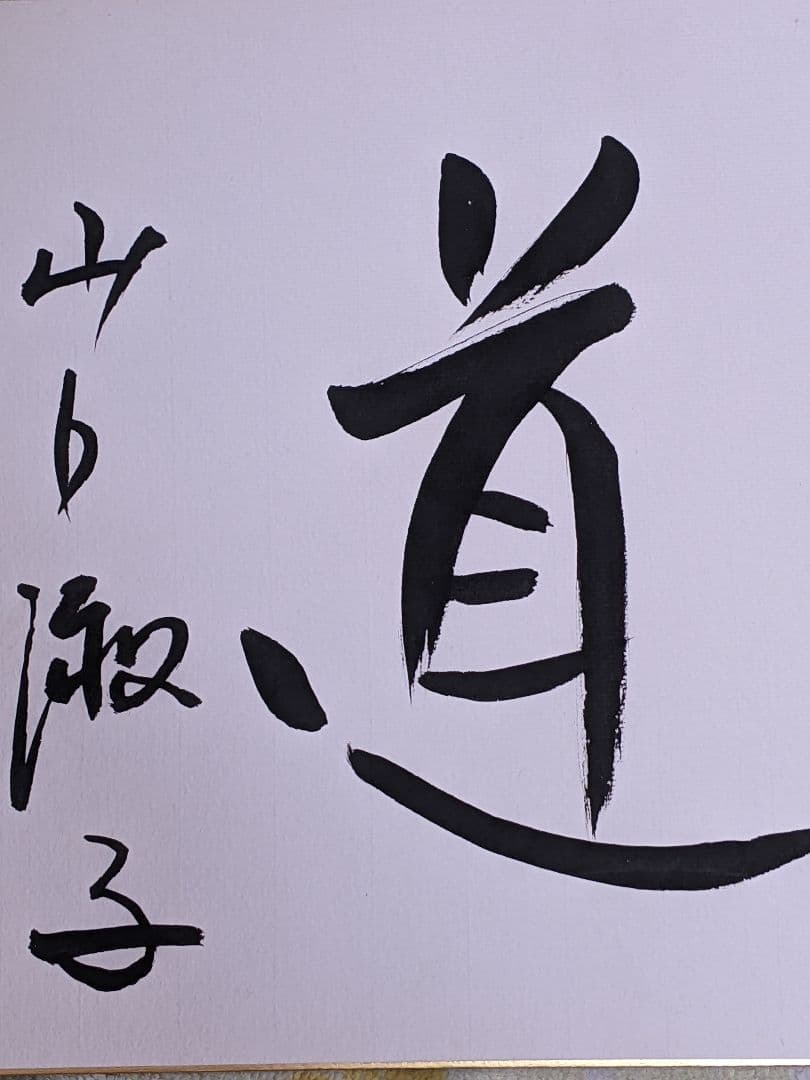 道
山口淑子